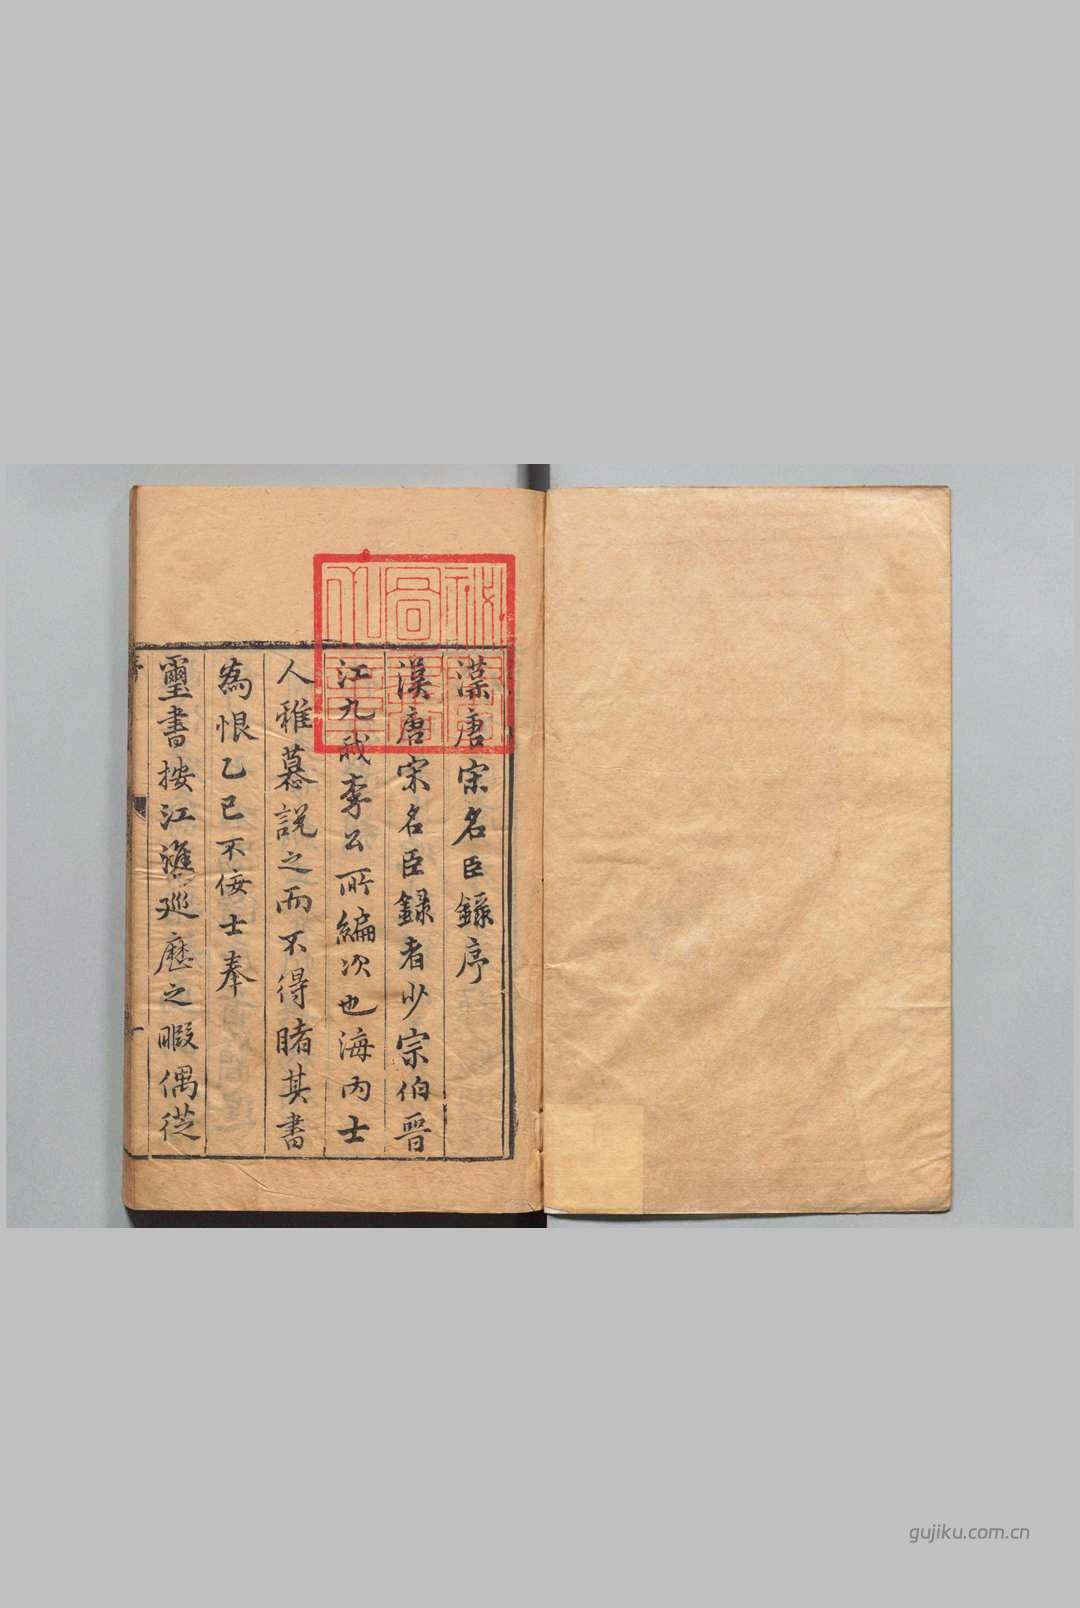 漢唐宋名臣錄序
漢唐宋名臣錄者少宗伯晉
江九我李公所編次也海內士
人雅慕說之而不得睹其書
為恨乙巳不佞士奉
璽書按江淮巡歷之暇偶從
序
一
gujiku.com.cn